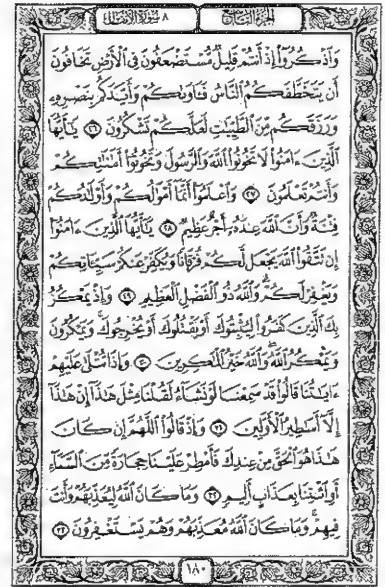 الجزء التاسع
٨ سورة الأنفال
وَاذْكُرُوا إِذْ أَنتُمْ قَلِيلٌ مُّسْتَضْعَفُونَ فِي الْأَرْضِ تَخَافُونَ
أَن يَتَخَطَّفَكُمُ النَّاسُ فَآوَاكُمْ وَأَيَّدَكُم بِنَصْرِهِ
وَرَزَقَكُم مِّنَ الطَّيِّبَاتِ لَعَلَّكُمْ تَشْكُرُونَ ٢٦ يَا أَيُّهَا
الَّذِينَ ءَامَنُوا لَا تَخُونُوا اللَّهَ وَالرَّسُولَ وَتَخُونُوا أَمَانَاتِكُمْ
وَأَنتُمْ تَعْلَمُونَ ٢٧ وَاعْلَمُوا أَنَّمَا أَمْوَالُكُمْ وَأَوْلَادُكُمْ
فِتْنَةٌ وَأَنَّ اللَّهَ عِندَهُ أَجْرٌ عَظِيمٌ ٢٨ يَا أَيُّهَا الَّذِينَ ءَامَنُوا
إِن تَتَّقُوا اللَّهَ يَجْعَل لَّكُمْ فُرْقَانًا وَيُكَفِّرْ عَنكُمْ سَيِّئَاتِكُمْ
وَيَغْفِرْ لَكُمْ وَاللَّهُ ذُو الْفَضْلِ الْعَظِيمِ ٢٩ وَإِذْ يَمْكُرُ
بِكَ الَّذِينَ كَفَرُوا لِيُثْبِتُوكَ أَوْ يَقْتُلُوكَ أَوْ يُخْرِجُوكَ وَيَمْكُرُونَ
وَيَمْكُرُ اللَّهُ وَاللَّهُ خَيْرُ الْمَاكِرِينَ ٣٠ وَإِذَا تُتْلَى عَلَيْهِمْ
ءَايَاتُنَا قَالُوا قَدْ سَمِعْنَا لَوْ نَشَاءُ لَقُلْنَا مِثْلَ هَٰذَا إِنْ هَٰذَا
إِلَّا أَسَاطِيرُ الْأَوَّلِينَ ٣١ وَإِذْ قَالُوا اللَّهُمَّ إِن كَانَ
هَٰذَا هُوَ الْحَقَّ مِنْ عِندِكَ فَأَمْطِرْ عَلَيْنَا حِجَارَةً مِّنَ السَّمَاءِ
أَوِ ائْتِنَا بِعَذَابٍ أَلِيمٍ ٣٢ وَمَا كَانَ اللَّهُ لِيُعَذِّبَهُمْ وَأَنتَ
فِيهِمْ وَمَا كَانَ اللَّهُ مُعَذِّبَهُمْ وَهُمْ يَسْتَغْفِرُونَ ٣٣
١٨٠